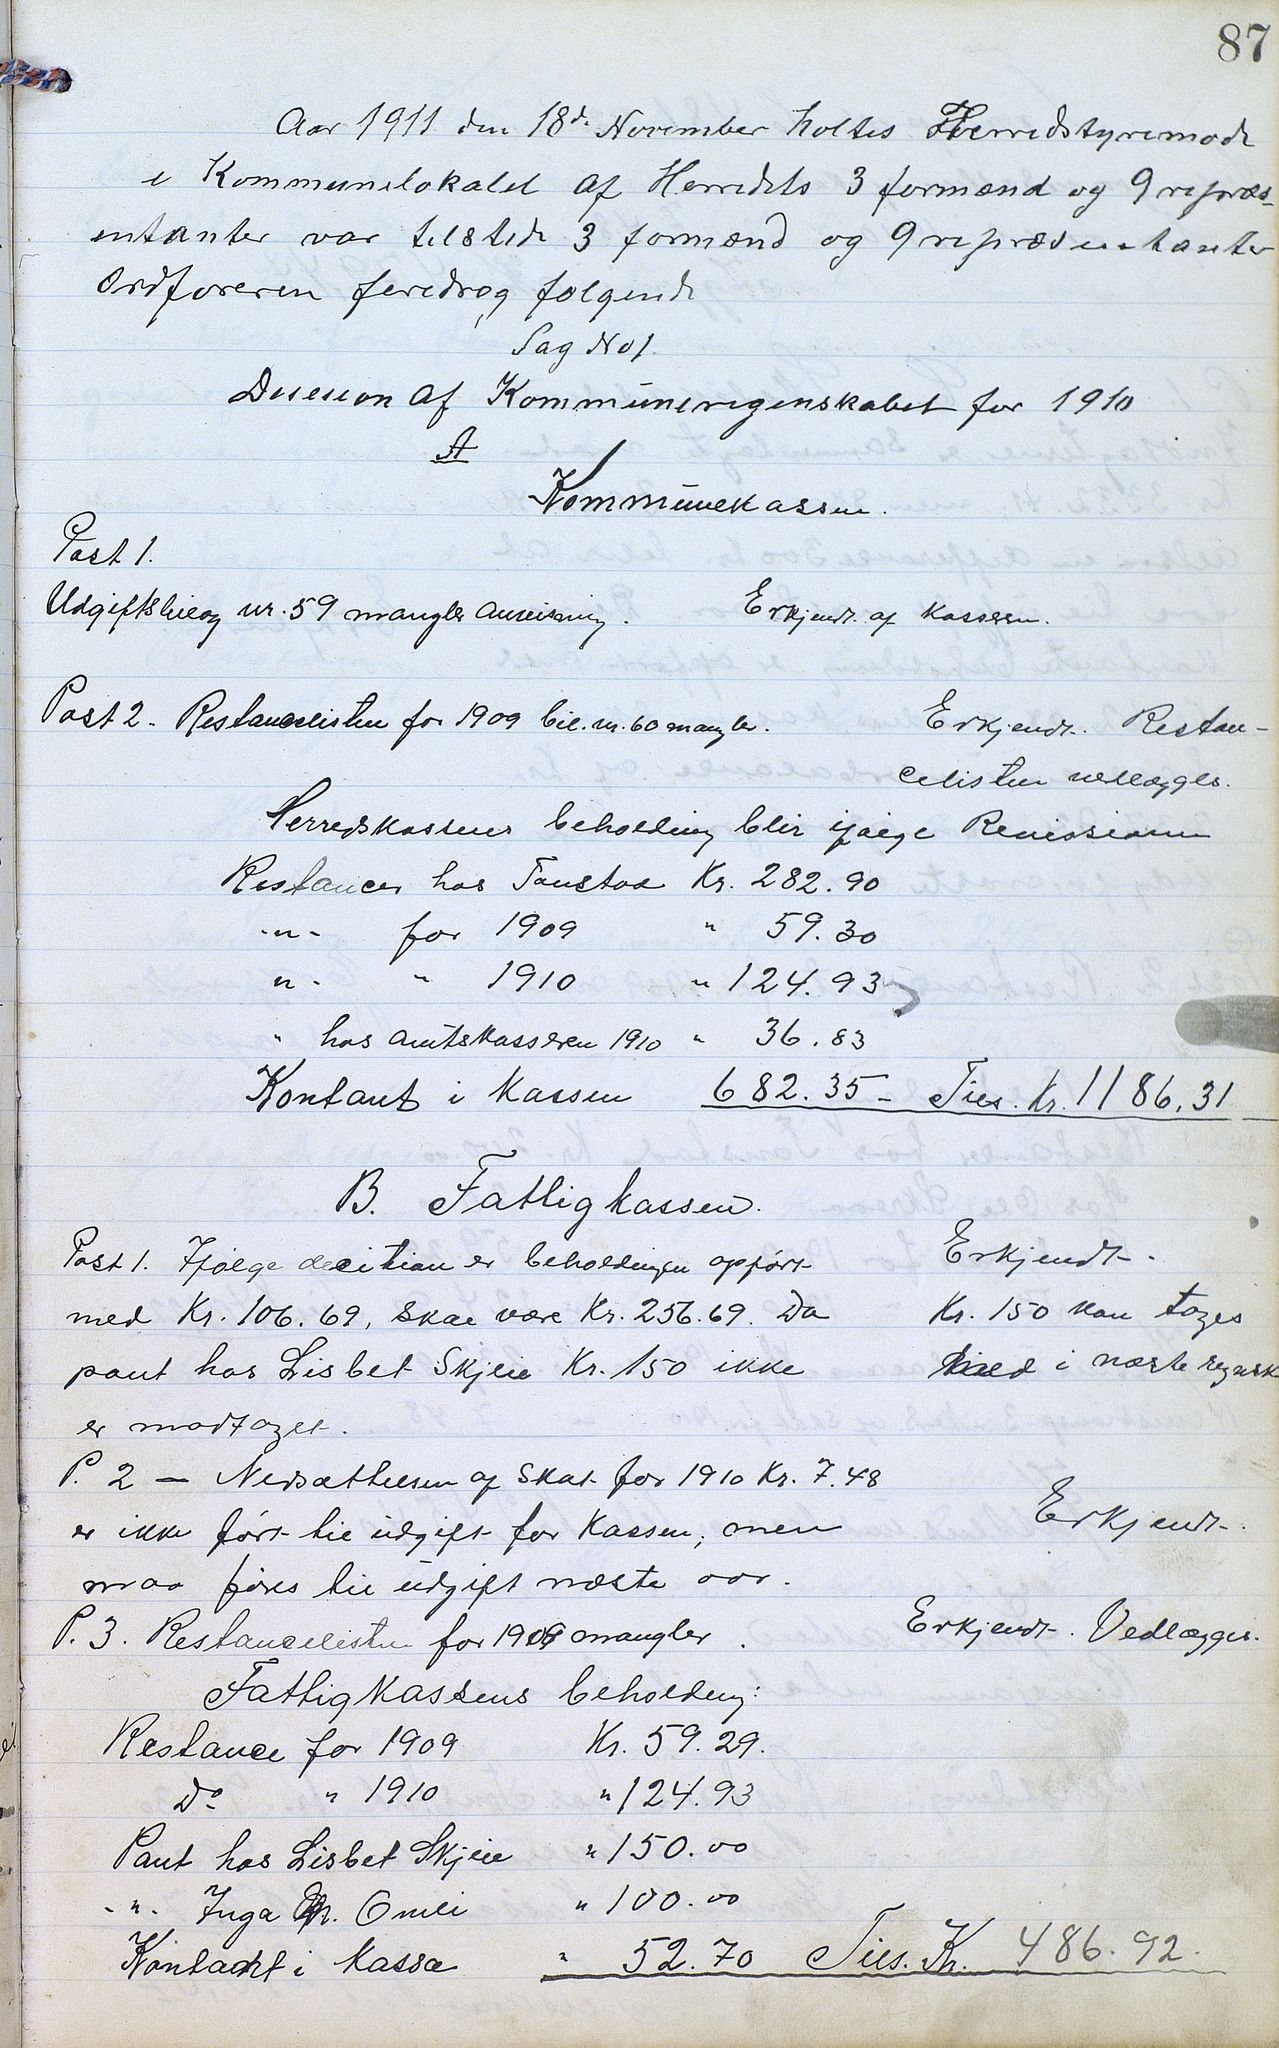 87
Aar 1911 den 18de November holtes Herredstyremøde
i Kommunelokalet af Herredets 3 formænd og 9 repræs-
entanter var tilstede 3 formænd og 9 repræsentanter
Ordføreren feredrog følgende
Sag No 1.
Desesion af Kommuneregnskabet for 1910
A
Kommunekassen.
Post 1.
Udgiftsbilag nr. 59 mangler anvisning. Erkjendt af kasseren.
Post 2. Restancelisten for 1909 bil. nr. 60 mangler. Erkjendt. Restan-
celisten vedlægges.
Herredskassens beholdning blir ifølge Revisionen
Restancer hos Tanstad Kr. 282.90
-"- for 1909 " 59.30
"- " 1910 " 124.93
" hos amtskasseren 1910 " 36.83
Kontant i Kassen 682.35 - Tils. Kr. 1186.31
B. Fattigkassen.
Post 1. Ifølge decition er beholdningen opført Erkjendt.
med Kr. 106.69, skal være Kr. 256.69. Da Kr. 150 kan tages
pant hos Lisbet Skjeie Kr. 150 ikke med i næste regnsk
er modtaget.
P. 2 - Nedsættelsen af Skat for 1910 Kr. 7.48
er ikke ført til udgift for Kassen, men Erkjendt.
maa føres til udgift næste aar.
P. 3. Restancelisten for 1909 mangler. Erkjendt. Vedlægges.
Fattigkassens beholdning:
Restance for 1909 Kr. 59.29.
Do " 1910 " 124.93
Pant hos Lisbet Skjeie " 150.00
-"- Inga Omli " 100.00
Kontant i Kassa " 52.70 Tils. Kr. 486.92.